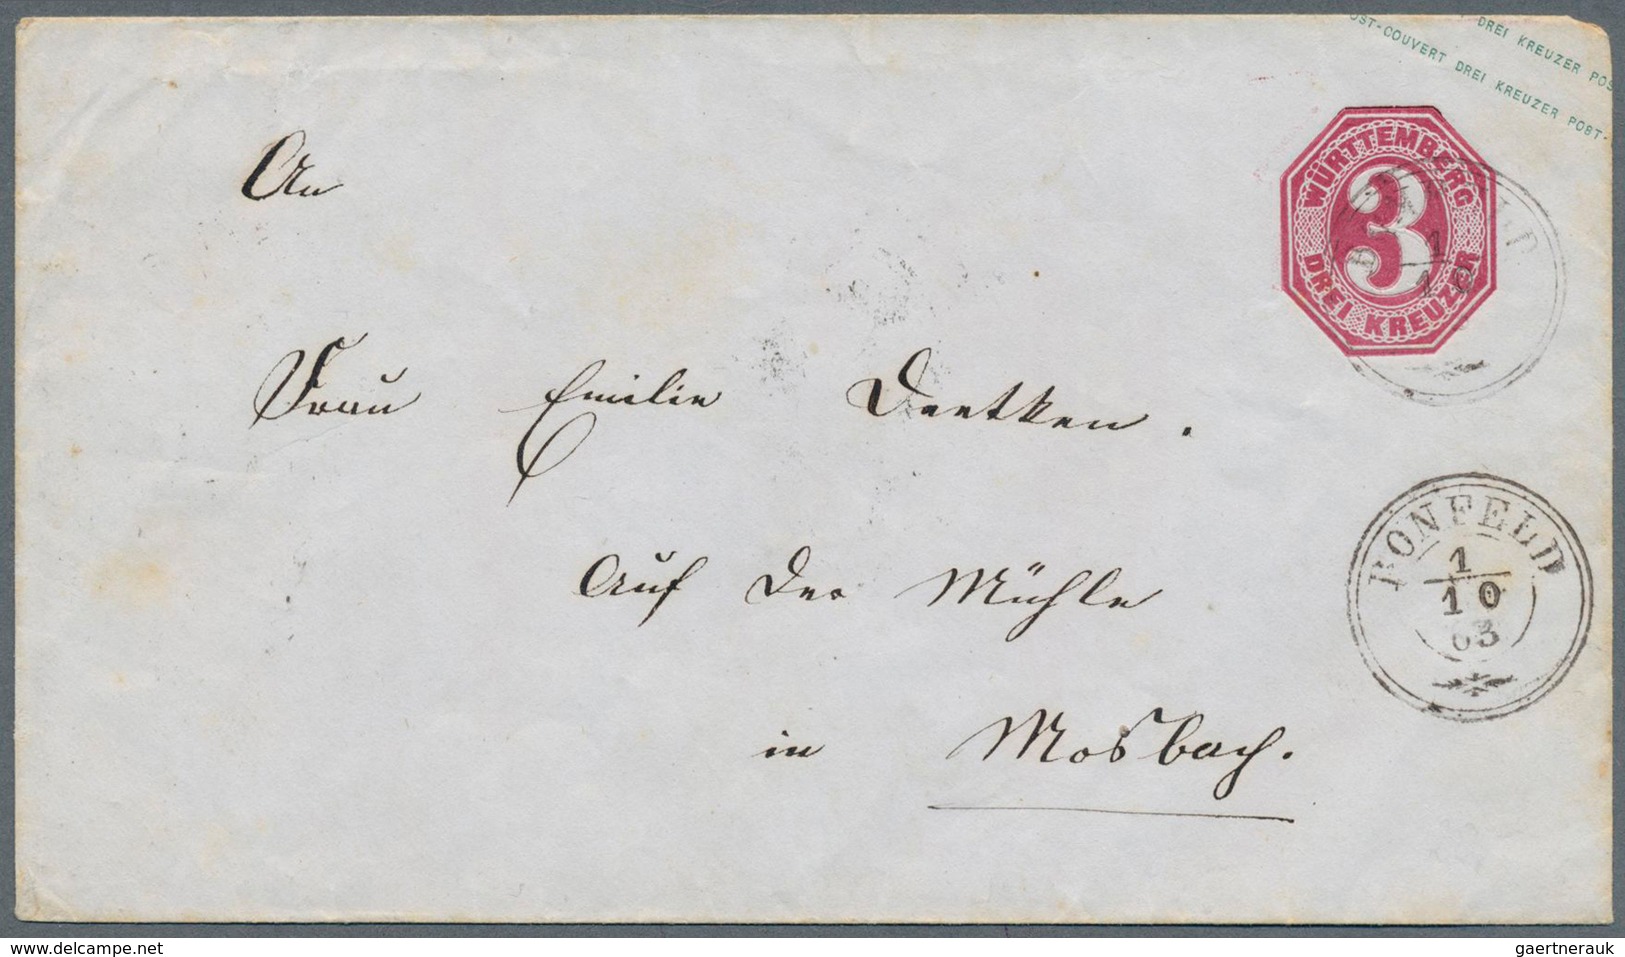 DREI KREUZER POS
OST-COUVERT DREI KREUZER POST-
WÜRTTEMBERG
3
DREI KREUZER
1
10
An
Frau Emilie
Auf der Mühle
in Mosbach.
BONFELD
1
10
63
www.delcampe.net
gaertnerauk